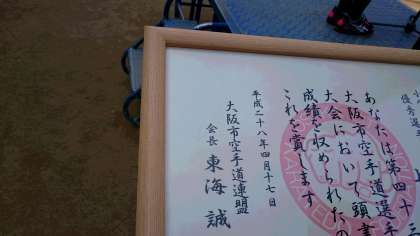 優秀選
あなたは第四十
大阪市空手道選手
大会において頭書
成績を収められたの
これを賞します
平成二十八年四月十七日
大阪市空手道連盟
会長 東海 誠